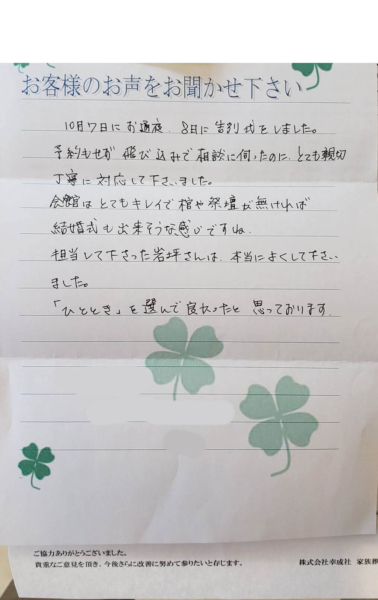 お客様のお声をお聞かせ下さい
10月7日にお通夜、8日に告別式をしました。
予約もせず飛び込みで相談に伺ったのに、とても親切
丁寧に対応して下さいました。
会館はとてもキレイで棺や祭壇が無ければ
結婚式も出来そうな感じですね。
担当して下さった岩坪さんは、本当によくして下さい
ました。
「ひととき」を選んで良かったと思っております。
ご協力ありがとうございました。
貴重なご意見を頂き、今後さらに改善に努めて参りたいと存じます。
株式会社幸成社 家族葬